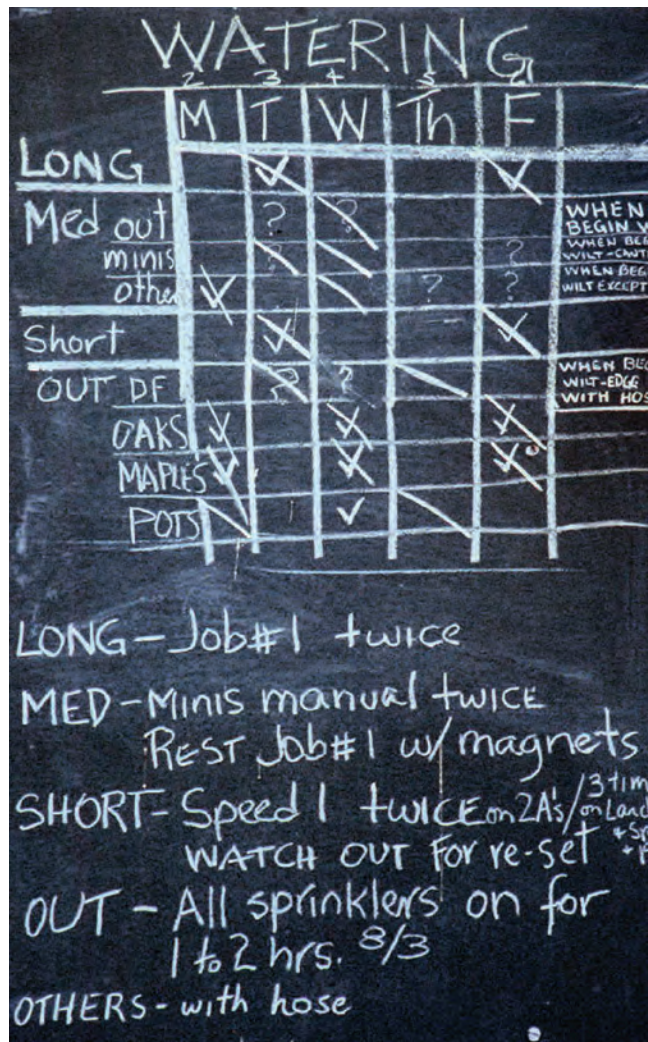 WATERING
2 3 4 5
M T W Th F
LONG ✓ ✓
Med out ? ? WHEN
BEGIN
minis ? ? WHEN BEG
WILT-CANT
other ✓ ? ? WHEN BEG
WILT EXCEPT
Short ✓ ✓
OUT DF ? ? WHEN BEG
WILT-EDGE
OAKS ✓ ✓ ✓ WITH HOS
MAPLES ✓ ✓ ✓
POTS ✓
LONG - Job #1 twice
MED - Minis manual twice
REST Job #1 w/ magnets
SHORT - Speed 1 twice on 2A's / 3 tim
on Land
WATCH OUT For re-set
OUT - All sprinklers on for
1 to 2 hrs. 8/3
OTHERS - with hose